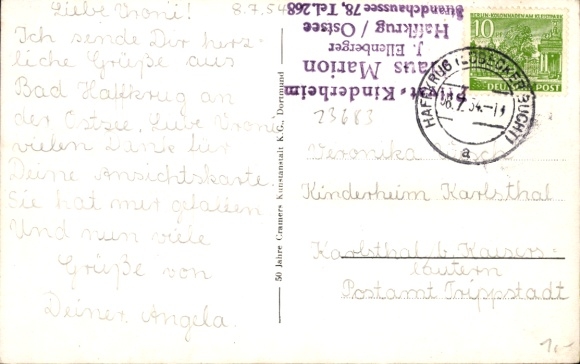 Liebe Vroni! 8.7.54
Ich sende Dir herz-
liche Grüße aus
Bad Haffkrug an
der Ostsee. Liebe Vroni
vielen Dank für
Deine Ansichtskarte.
Sie hat mir gefallen
Und nun viele
Grüße von
Deiner Angela.
50 Jahre Cramers Kunstanstalt K.G., Dortmund
Kinderheim
Haus Marion
J. Ellenberger
Haffkrug / Ostsee
Strandchaussee 78, Tel. 268
23683
10
DEUTSCHE POST
HAFFKRUG (LÜBECKER BUCHT)
a
Veronika
Kinderheim Karlsthal
Karlsthal b. Kaisers-
lautern
Postamt Trippstadt